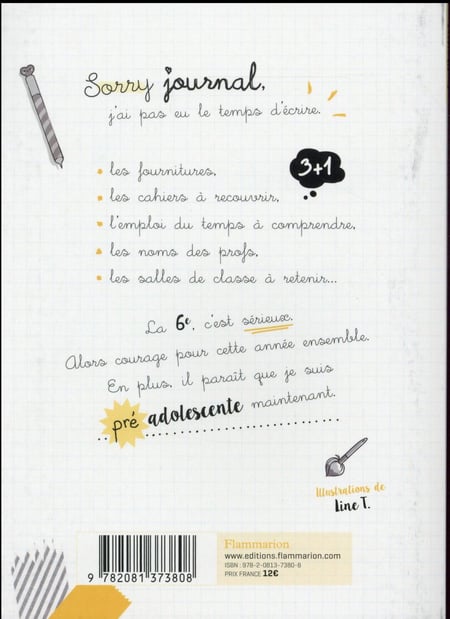 Sorry journal,
j'ai pas eu le temps d'écrire.
3+1
• les fournitures,
• les cahiers à recouvrir,
• l'emploi du temps à comprendre,
• les noms des profs,
• les salles de classe à retenir...
La 6e, c'est sérieux.
Alors courage pour cette année ensemble.
En plus, il paraît que je suis
pré adolescente maintenant.
Illustrations de
Line T.
Flammarion
www.editions.flammarion.com
ISBN : 978-2-0813-7380-8
PRIX FRANCE 12€
9 782081 373808